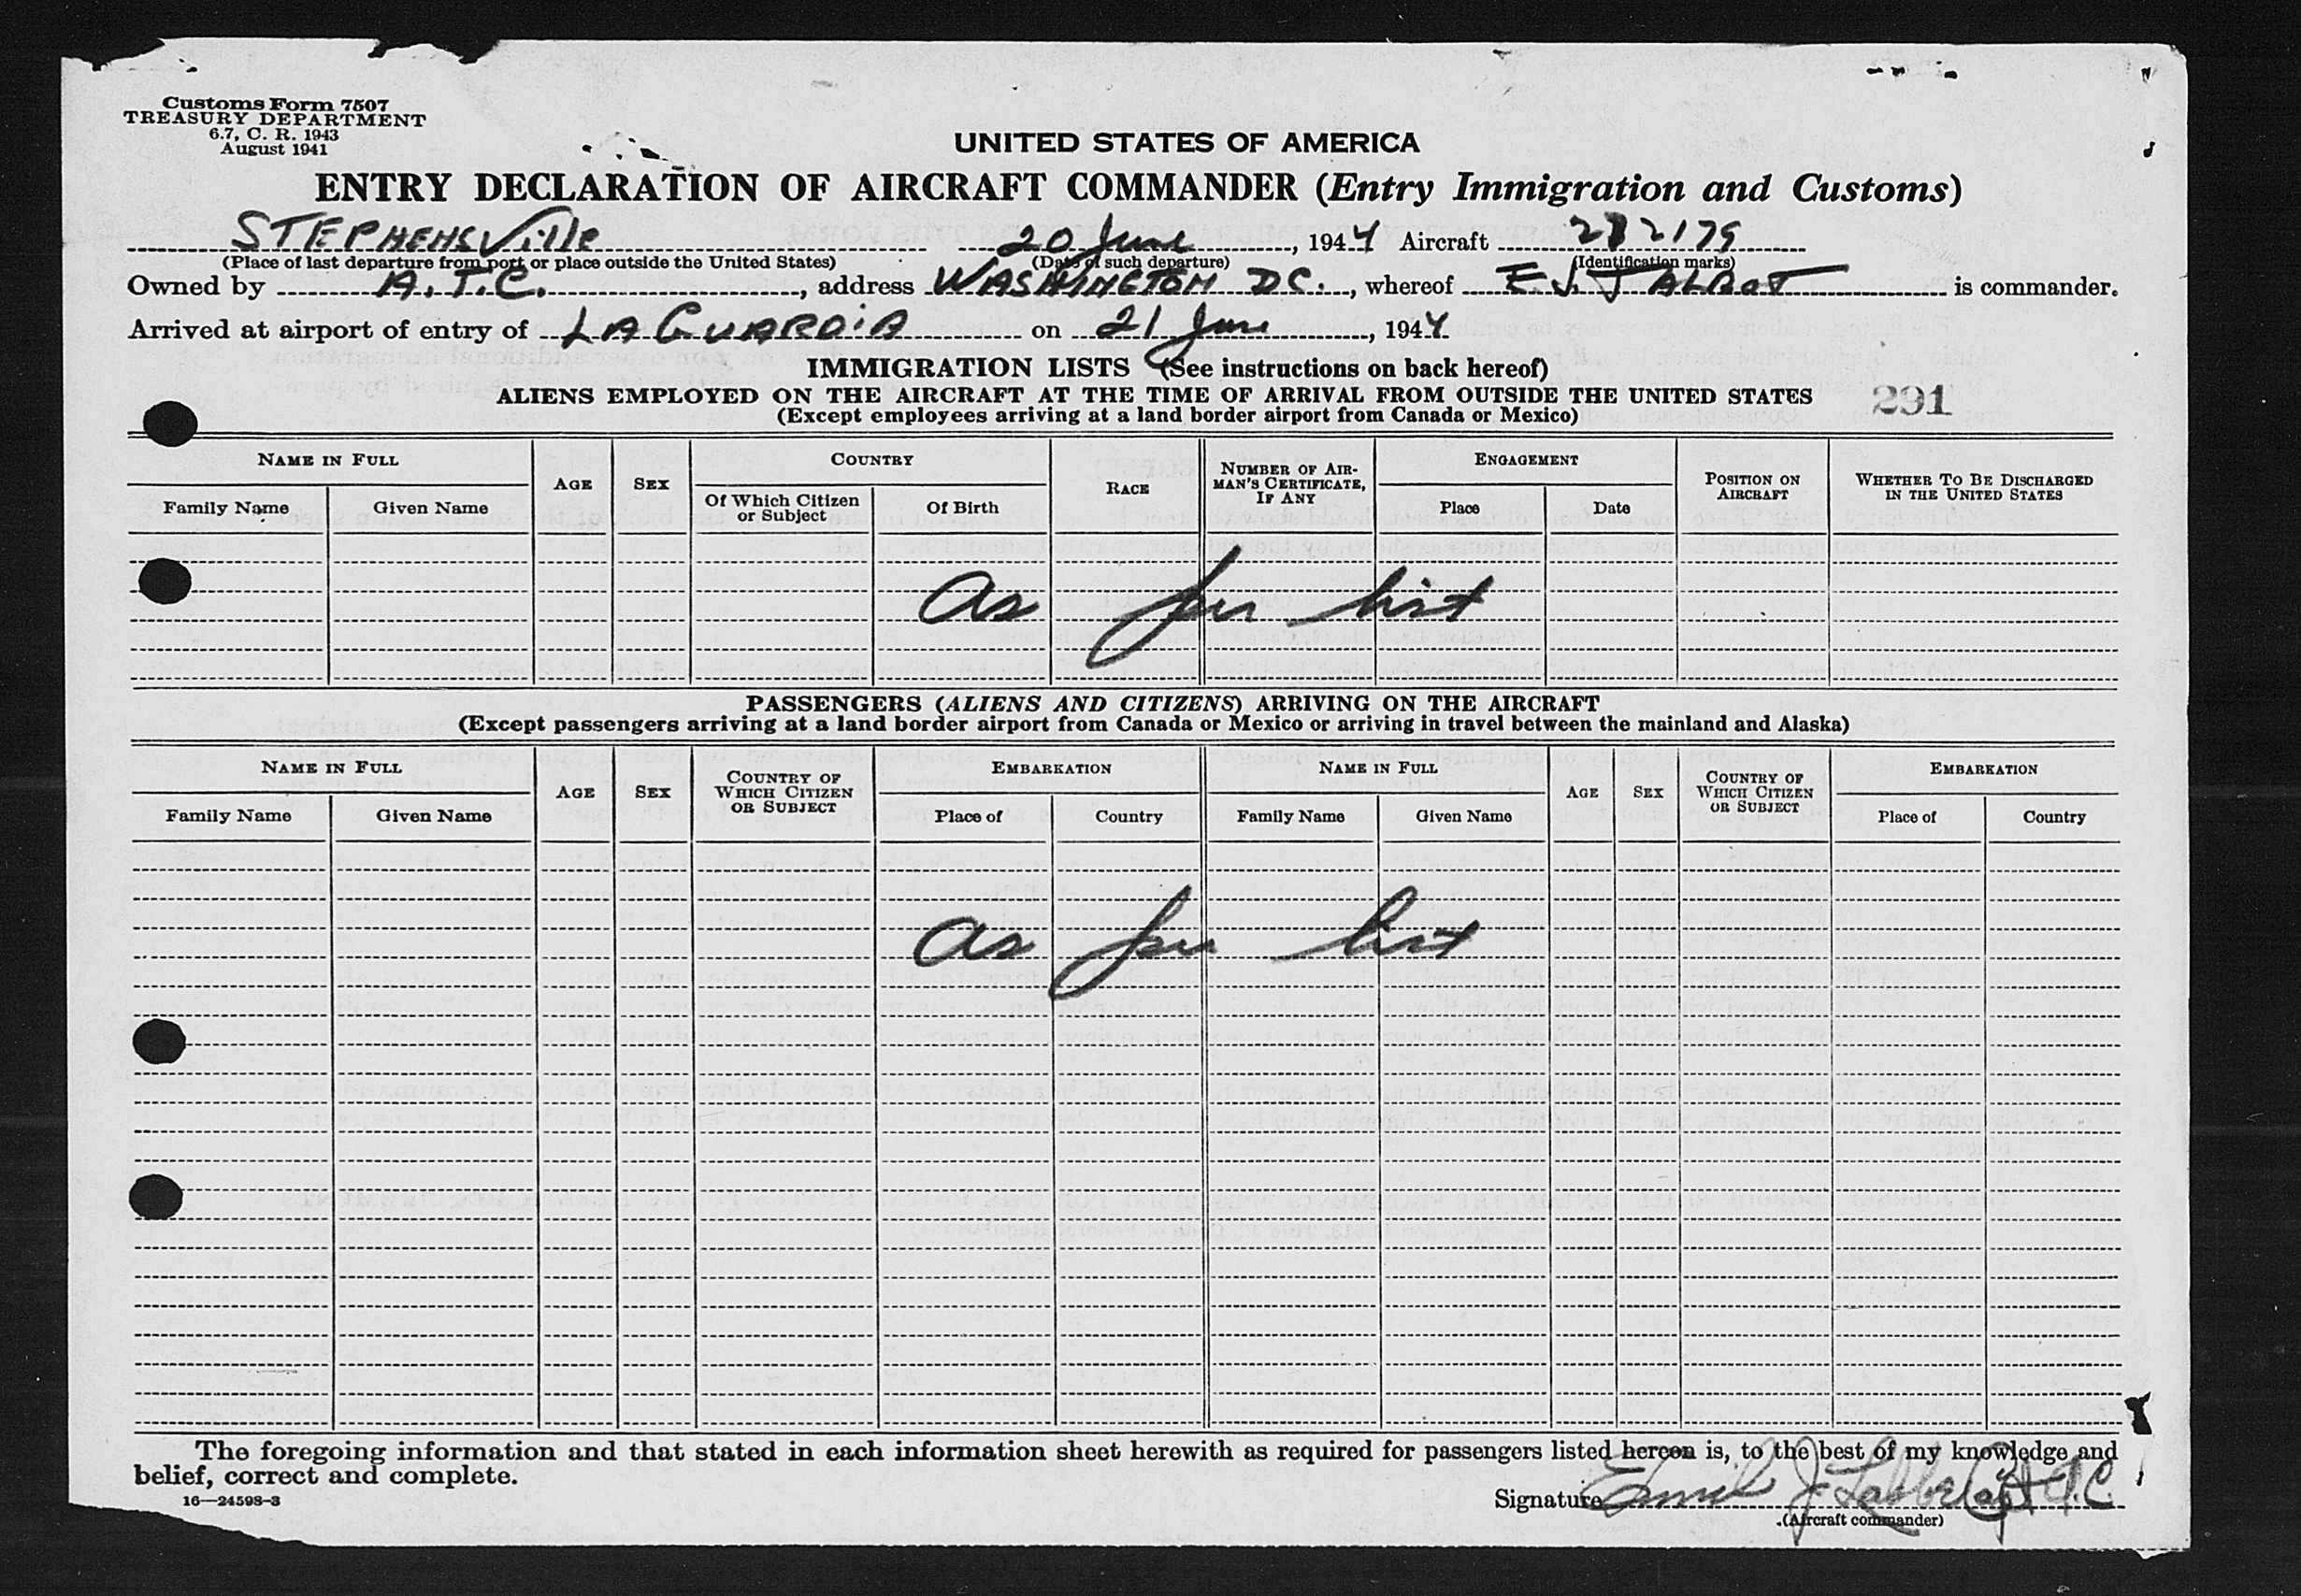 Customs Form 7507
TREASURY DEPARTMENT
6.7, C. R. 1943
August 1941
UNITED STATES OF AMERICA
ENTRY DECLARATION OF AIRCRAFT COMMANDER (Entry Immigration and Customs)
STEPHENSVille 20 June, 1944 Aircraft
(Place of last departure from port or place outside the United States) (Date of such departure) (Identification marks)
Owned by A.T.C., address WASHINGTON DC., whereof E.J. TALBOT is commander.
Arrived at airport of entry of LA GUARDIA on 21 June, 1944
IMMIGRATION LISTS (See instructions on back hereof)
ALIENS EMPLOYED ON THE AIRCRAFT AT THE TIME OF ARRIVAL FROM OUTSIDE THE UNITED STATES 291
(Except employees arriving at a land border airport from Canada or Mexico)
NAME IN FULL AGE SEX COUNTRY RACE NUMBER OF AIR-MAN'S CERTIFICATE, IF ANY ENGAGEMENT POSITION ON AIRCRAFT WHETHER TO BE DISCHARGED IN THE UNITED STATES
Family Name Given Name Of Which Citizen or Subject Of Birth Place Date
As per list
PASSENGERS (ALIENS AND CITIZENS) ARRIVING ON THE AIRCRAFT
(Except passengers arriving at a land border airport from Canada or Mexico or arriving in travel between the mainland and Alaska)
NAME IN FULL AGE SEX COUNTRY OF WHICH CITIZEN OR SUBJECT EMBARKATION NAME IN FULL AGE SEX COUNTRY OF WHICH CITIZEN OR SUBJECT EMBARKATION
Family Name Given Name Place of Country Family Name Given Name Place of Country
As per list
The foregoing information and that stated in each information sheet herewith as required for passengers listed hereon is, to the best of my knowledge and
belief, correct and complete.
16—24598-3
Signature J. Capt
(Aircraft commander)